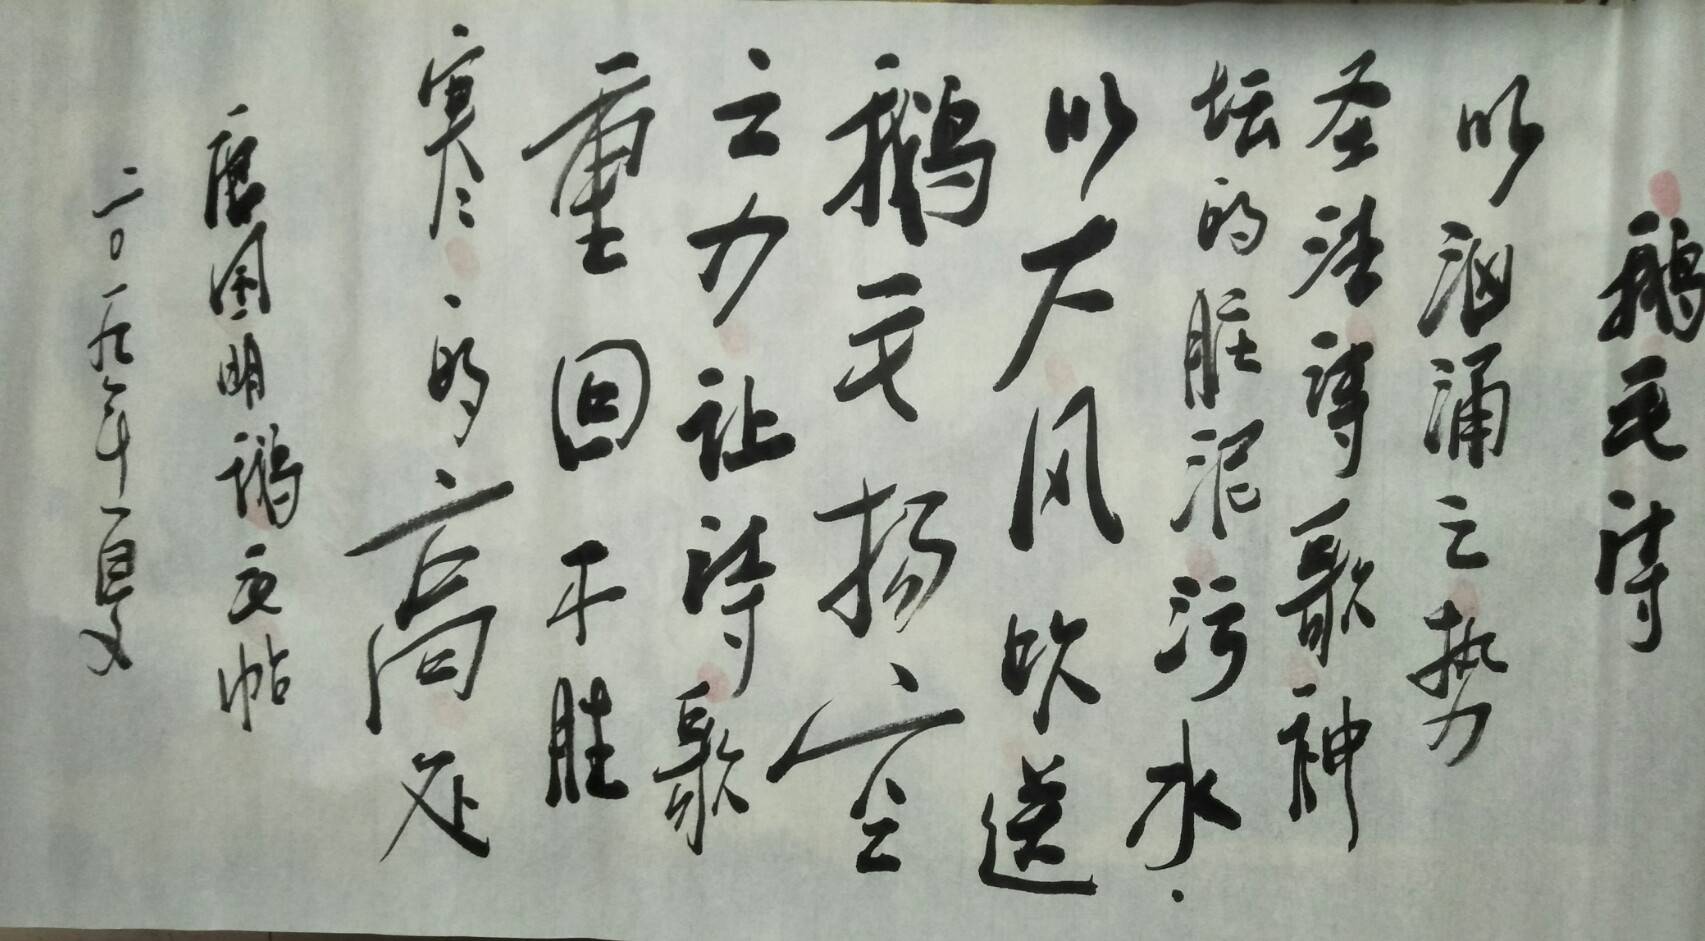 鹅毛诗
以汹涌之势
圣洁诗歌神
坛的脏泥污水.
以大风吹送
鹅毛扬空
之力让诗歌
重回不胜
寒的高处
唐国明鹅毛帖
二〇一九年